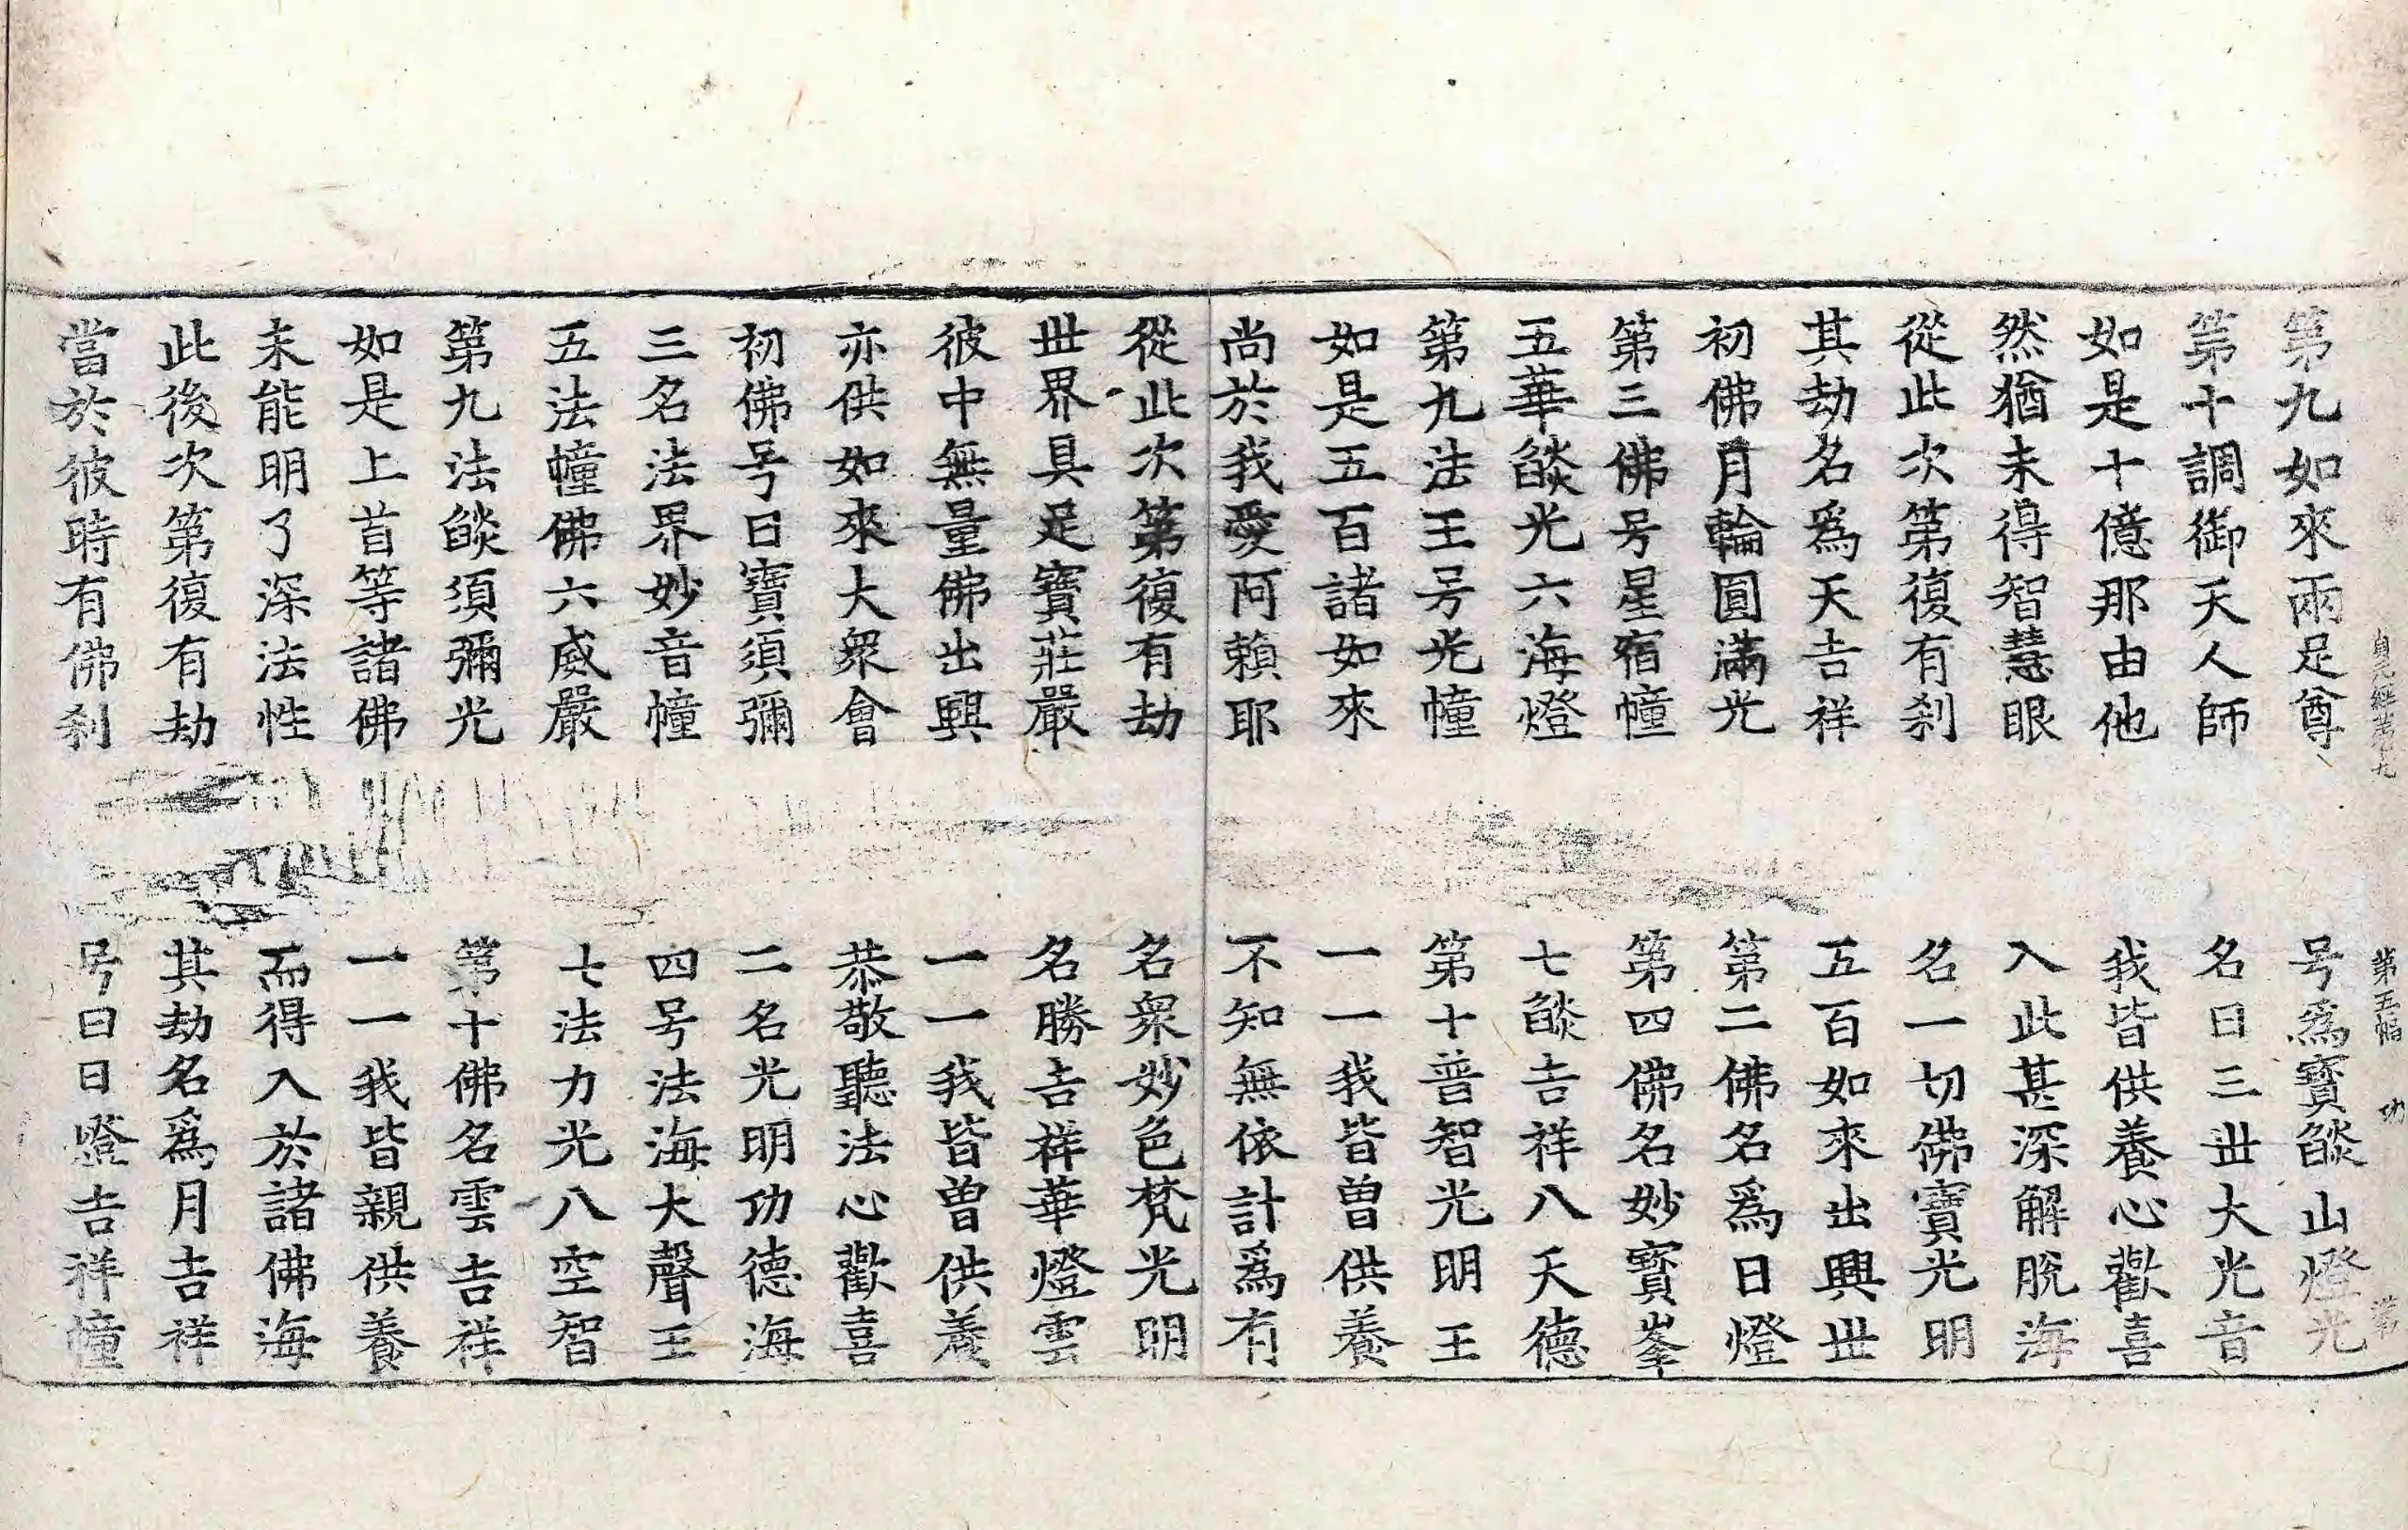 貞元經第十九 第五幅 功 常
第九如來兩足尊 号爲寶燄山燈光
第十調御天人師 名曰三世大光音
如是十億那由他 我皆供養心歡喜
然猶未得智慧眼 入此甚深解脫海
從此次第復有刹 名一切佛寶光明
其劫名爲天吉祥 五百如來出興世
初佛月輪圓滿光 第二佛名爲日燈
第三佛号星宿幢 第四佛名妙寶峯
五華燄光六海燈 七燄吉祥八天德
第九法王号光幢 第十普智光明王
如是五百諸如來 一一我皆曾供養
尚於我愛阿賴耶 不知無依計爲有
從此次第復有劫 名衆妙色梵光明
世界具足寶莊嚴 名勝吉祥華燈雲
彼中無量佛出興 一一我皆曾供養
亦供如來大衆會 恭敬聽法心歡喜
初佛号曰寶須彌 二名光明功德海
三名法界妙音幢 四号法海大聲王
五法幢佛六威嚴 七法力光八空智
第九法燄須彌光 第十佛名雲吉祥
如是上首等諸佛 一一我皆親供養
未能明了深法性 而得入於諸佛海
此後次第復有劫 其劫名爲月吉祥
當於彼時有佛刹 号曰日燈吉祥幢